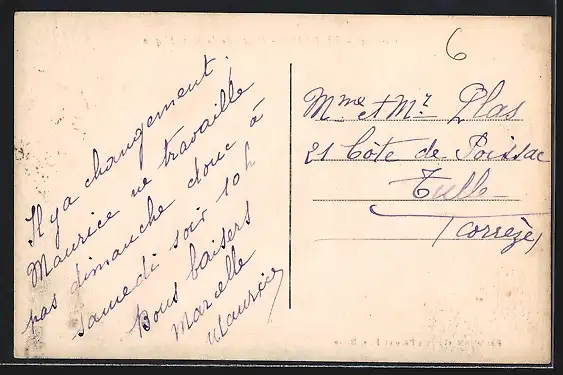 Il y a changement.
Maurice ne travaille
pas dimanche donc à
samedi soir 10h
Bons baisers
Marcelle
Maurice
6
Mme et Mr Plas
21 Côte de Poissac
Tulle
(Corrèze)